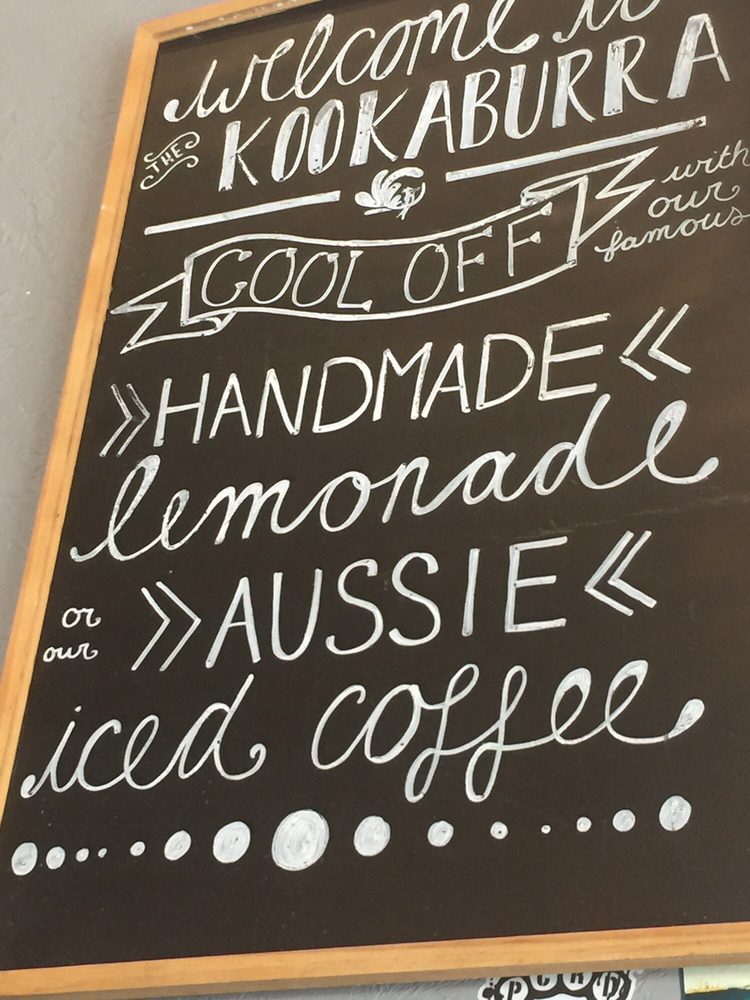 welcome to
THE KOOKABURRA
COOL OFF
with
our
famous
HANDMADE
lemonade
or
our
AUSSIE
iced coffee